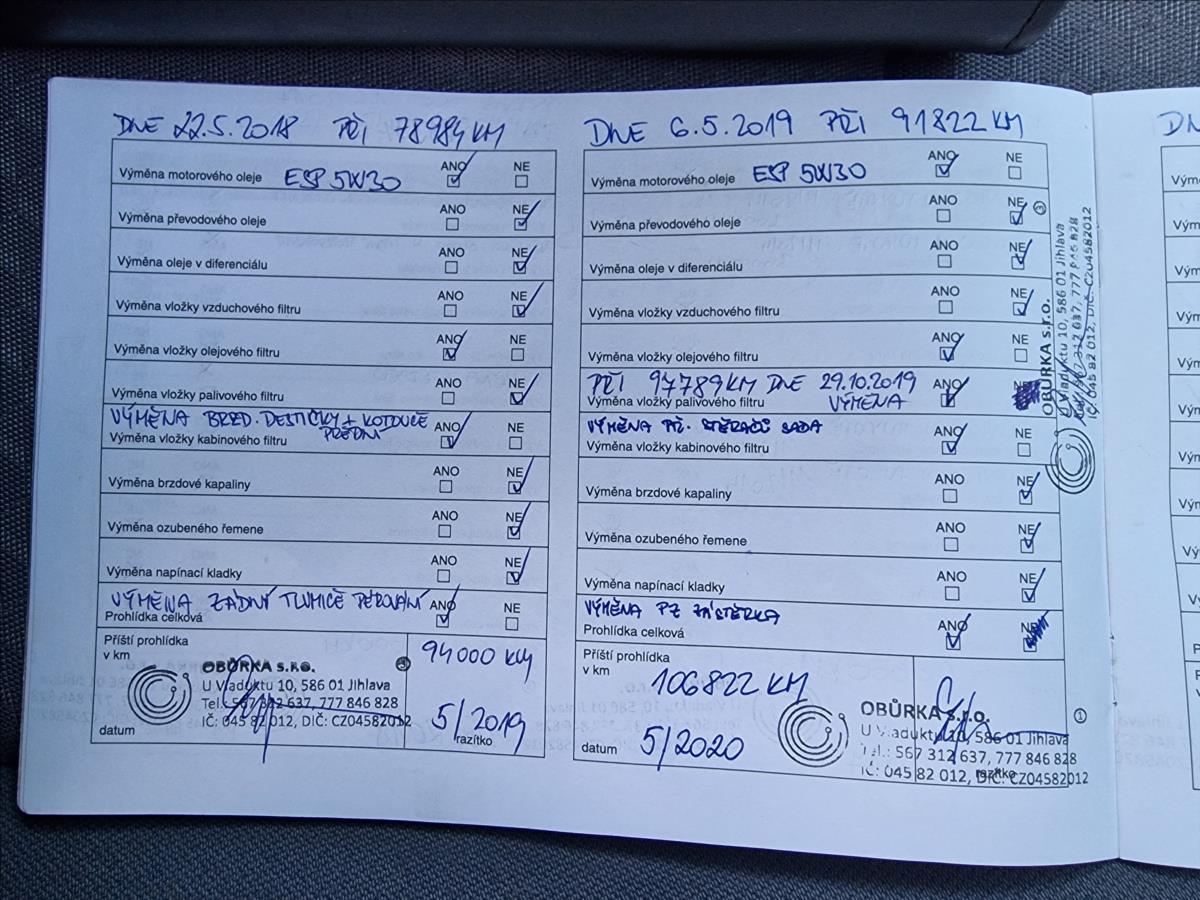 DNE 22.5.2018 PŘI 78984 KM
Výměna motorového oleje ESP 5W30 ANO NE
Výměna převodového oleje ANO NE
Výměna oleje v diferenciálu ANO NE
Výměna vložky vzduchového filtru ANO NE
Výměna vložky olejového filtru ANO NE
Výměna vložky palivového filtru ANO NE
VÝMĚNA BRZD. DESTIČKY + KOTOUČE
PŘEDNÍ
Výměna vložky kabinového filtru ANO NE
Výměna brzdové kapaliny ANO NE
Výměna ozubeného řemene ANO NE
Výměna napínací kladky ANO NE
VÝMĚNA ZADNÍ TLUMIČE PÉROVÁNÍ
Prohlídka celková ANO NE
Příští prohlídka
v km
94000 KM
OBŮRKA s.r.o. 3
U Viaduktu 10, 586 01 Jihlava
Tel.: 567 312 637, 777 846 828
IČ: 045 82 012, DIČ: CZ04582012
datum
5/2019
razítko
DNE 6.5.2019 PŘI 91822 KM
Výměna motorového oleje ESP 5W30 ANO NE
Výměna převodového oleje ANO NE
Výměna oleje v diferenciálu ANO NE
Výměna vložky vzduchového filtru ANO NE
Výměna vložky olejového filtru ANO NE
PŘI 97789 KM DNE 29.10.2019 ANO
Výměna vložky palivového filtru VÝMĚNA
VÝMĚNA PŘ. STĚRAČŮ SADA
Výměna vložky kabinového filtru ANO NE
Výměna brzdové kapaliny ANO NE
Výměna ozubeného řemene ANO NE
Výměna napínací kladky ANO NE
VÝMĚNA PZ ZÁSTĚRKA
Prohlídka celková ANO NE
Příští prohlídka
v km
106822 KM
datum 5/2020
OBŮRKA s.r.o. 1
U Viaduktu 10, 586 01 Jihlava
Tel.: 567 312 637, 777 846 828
IČ: 045 82 012, DIČ: CZ04582012
razítko
3
OBŮRKA s.r.o.
U Viaduktu 10, 586 01 Jihlava
Tel.: 567 312 637, 777 846 828
IČ: 045 82 012, DIČ: CZ04582012
DN
Výmě
Vým
Vým
Výmě
Výmě
Výmě
Výmě
Výmě
Výmě
Vý
P